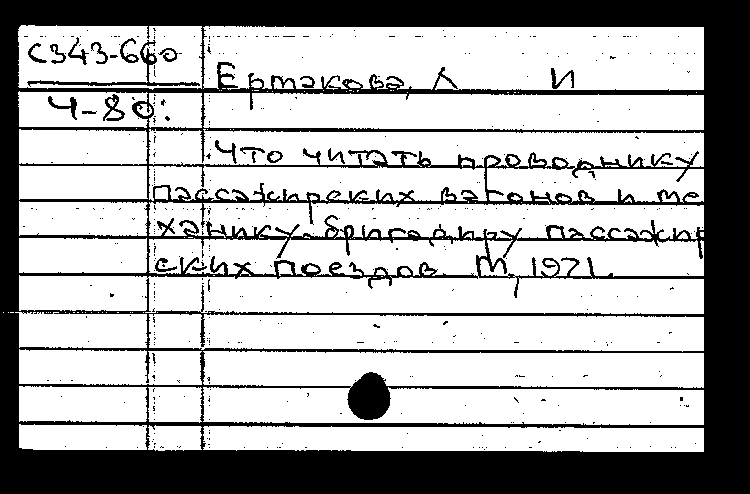 С343-660
Ч-80:
Ермакова, Л И
Что читать проводнику
пассажирских вагонов и ме
ханику-бригадиру пассажир
ских поездов. М, 1971.